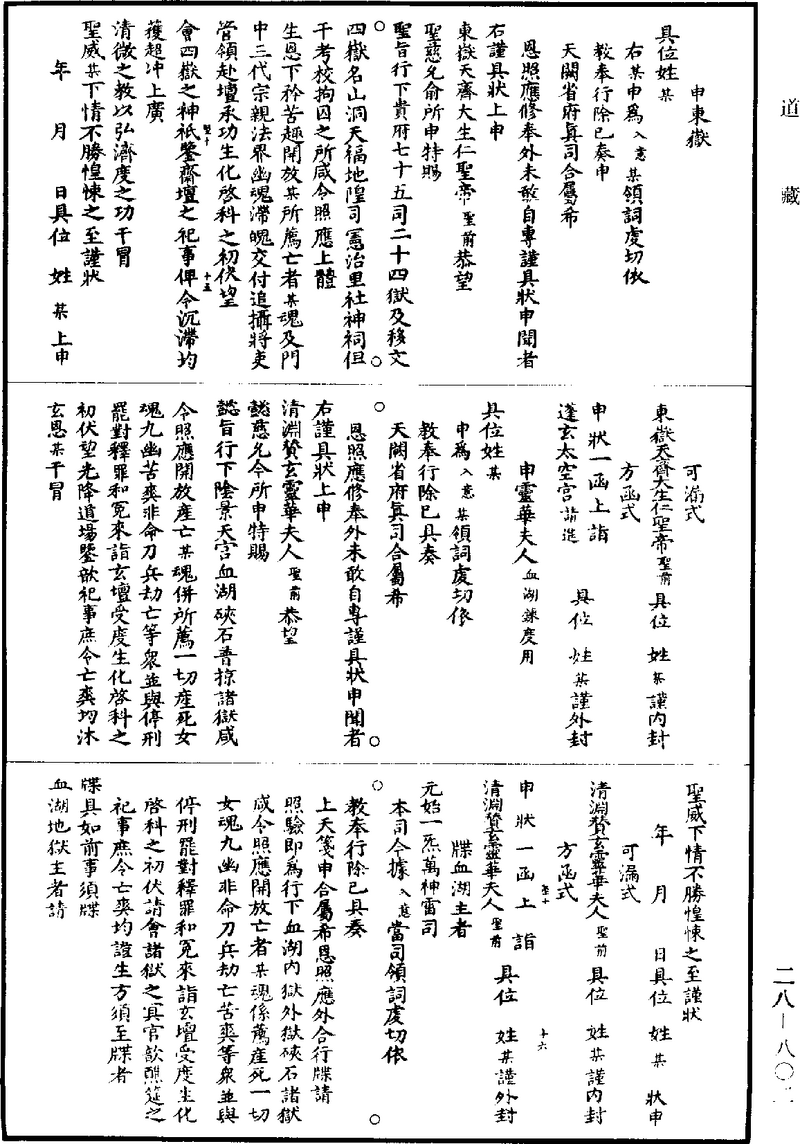 道藏
申東嶽
具位姓某
右某申爲入意某領詞虔切依
教奉行除已奏申
天闕省府真司合屬希
恩照應修奉外未敢自專謹具狀申聞者
右謹具狀上申
東嶽天齊大生仁聖帝聖前恭望
聖慈允俞所申特賜
聖旨行下貴府七十五司二十四獄及移文
四嶽名山洞天福地隍司憲治里社神祠但
干考校拘囚之所咸令照應上體
生恩下衿苦趣開放某所薦亡者某魂及門
中三代宗親法界幽魂滯魄交付追攝將吏
管領赴壇承功生化啓科之初伏望
會四嶽之神祇鑒齋壇之祀事俾令沉滯均
獲超冲上廣
清微之教以弘濟度之功干冒
聖威某下情不勝惶悚之至謹狀
年月日具位姓某上申
可漏式
東嶽天齊大生仁聖帝聖前具位姓某謹内封
方函式
申狀一函上詣
蓬玄太空宮請進具位姓某謹外封
申靈華夫人血湖鍊度用
具位姓某
申爲入意某領詞虔切依
教奉行除已具奏
天闕省府真司合屬希
恩照應修奉外未敢自專謹具狀申聞者
右謹具狀上申
清淵贊玄靈華夫人聖前恭望
懿慈允令所申特賜
懿旨行下陰景天宮血湖硤石普掠諸獄咸
令照應開放產亡某魂併所薦一切產死女
魂九幽苦爽非命刀兵劫亡等衆並與停刑
罷對釋罪和冤來詣玄壇受度生化啓科之
初伏望光降道場鑒歆祀事庶令亡爽均沐
玄恩某干冒
聖威下情不勝惶悚之至謹狀
年月日具位姓某狀申
可漏式
清淵贊玄靈華夫人聖前具位姓某謹内封
方函式
申狀一函上詣
清淵贊玄靈華夫人聖前具位姓某謹外封
牒血湖主者
元始一炁萬神雷司
本司今據入意當司領詞虔切依
教奉行除已具奏
上天箋申合屬希恩照應外合行牒請
照驗即爲行下血湖内獄外獄硤石諸獄
咸令照應開放亡者某魂係薦產死一切
女魂九幽非命刀兵劫亡苦爽等衆並與
停刑罷對釋罪和冤來詣玄壇受度生化
啓科之初伏請會諸獄之真官歆醮筵之
祀事庶令亡爽均證生方須至牒者
牒具如前事須牒
血湖地獄主者請
二八—八〇二